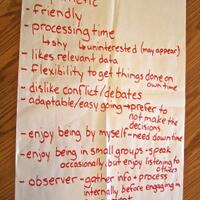 - friendly
- processing time
↳ shy ↳ uninterested (may appear)
- likes relevant data
- flexibility to get things done on
own time
- dislike conflict/debates
- adaptable/easy going → prefer to
not make the
decisions
- enjoy being by myself - need down time
- enjoy being in small groups - speak
occasionally, but enjoy listening to
others
- observer - gather info + process
internally before engaging in